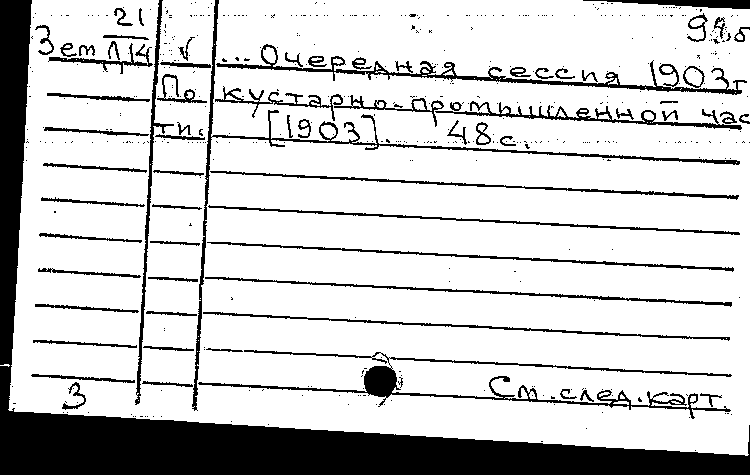 21
Зем Л14 √ ... Очередная сессия 1903г
По кустарно-промышленной час
ти. [1903]. 48 с.
3
См. след. карт.